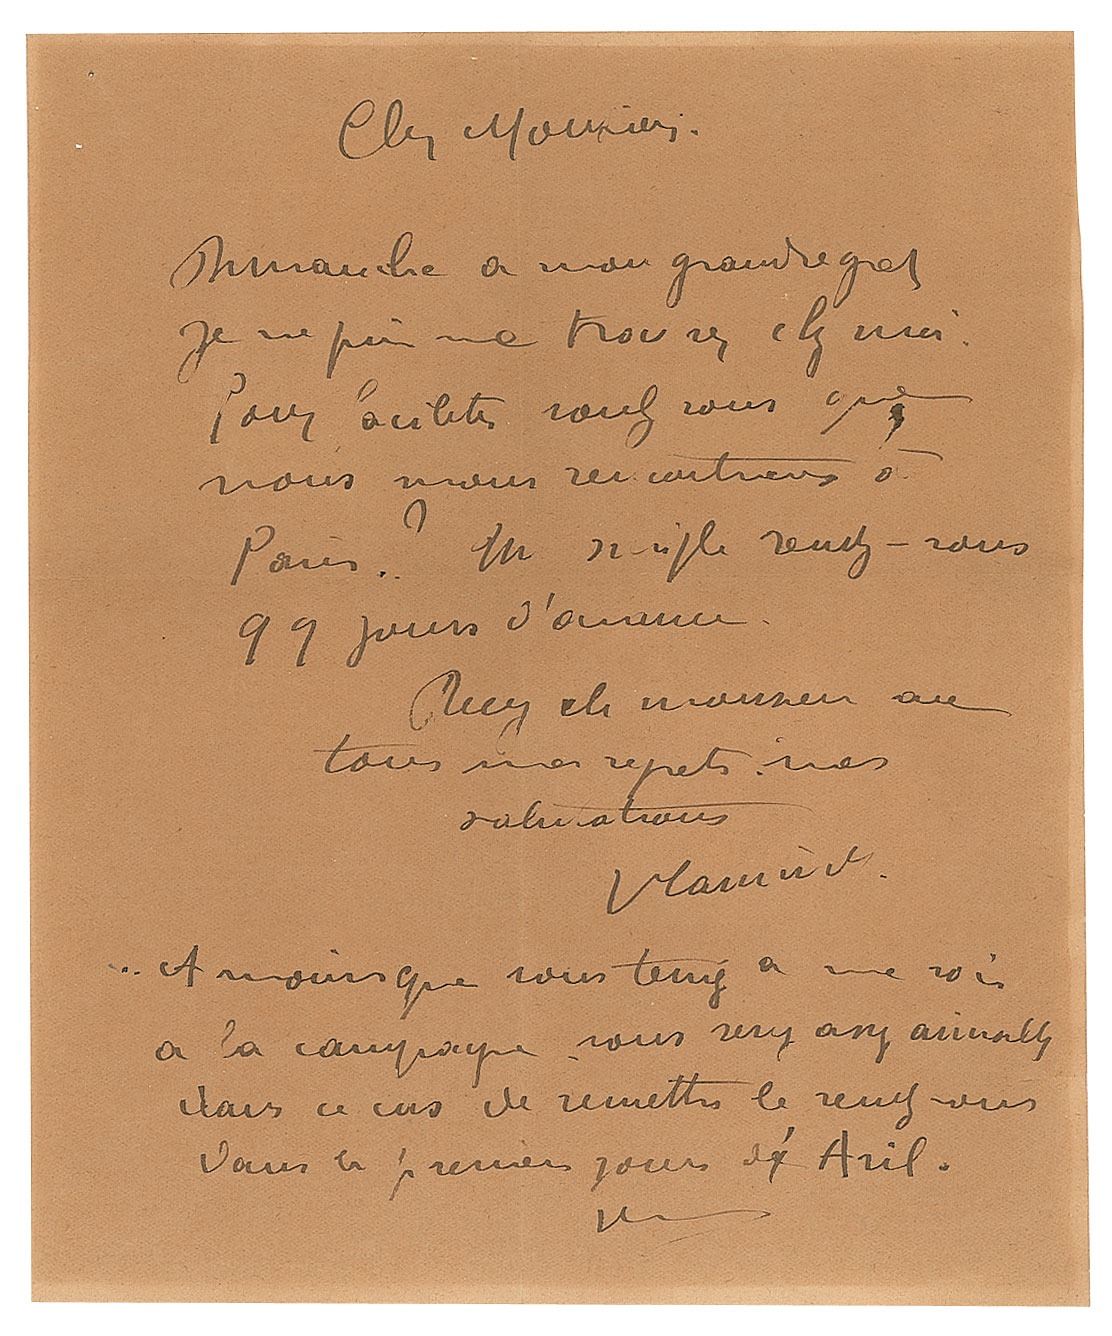 Cher Monsieur.
Dimanche a mon grand regret
je ne puis me trouver chez moi.
Pour faciliter voulez vous que
nous nous rencontrions à
Paris..? Un simple rendez-vous
qq jours d'avance.
Recevez cher monsieur avec
tous mes respects. mes
salutations
Vlaminck.
... A moins que vous teniez a me voir
a la campagne vous serez assez aimable
dans ce cas de remettre le rendez-vous
dans les premiers jours d' Avril.